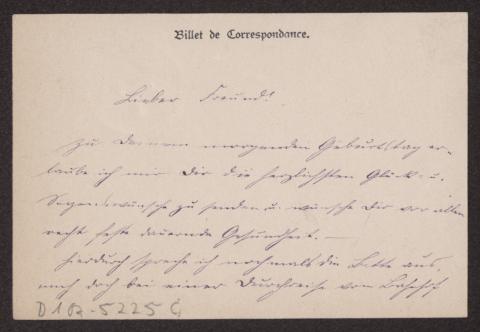 Billet de Correspondance.
Lieber Freund!
Zu Deinem morgenden Geburtstag er-
laube ich mir Dir die herzlichsten Glück- u.
Segenswünsche zu senden u. wünsche Dir vor allem
recht feste dauernde Gesundheit. —
Hierdurch spreche ich nochmals die Bitte aus,
mich doch bei einer Durchreise vom Bahnhof
D 102-5225 C